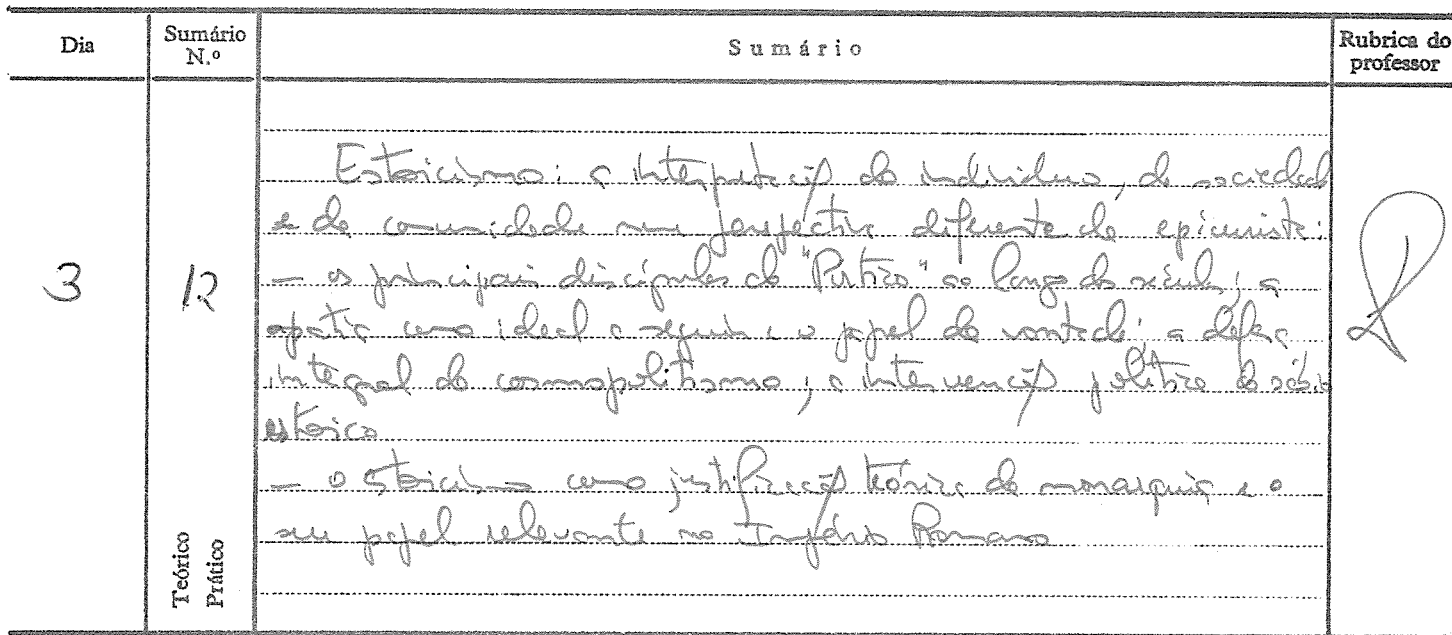 Dia
Sumário N.º
Sumário
Rubrica do professor
3
12
Teórico
Prático
Estoicismo: a interpretação do indivíduo, da sociedade
e da comunidade numa perspectiva diferente da epicurista:
— os principais discípulos do "Pórtico" ao longo dos séculos; a
apatia como ideal a seguir e o papel da vontade; a defesa
integral do cosmopolitismo; a intervenção política do sábio
estoico
— o estoicismo como justificação teórica da monarquia e o
seu papel relevante no Império Romano